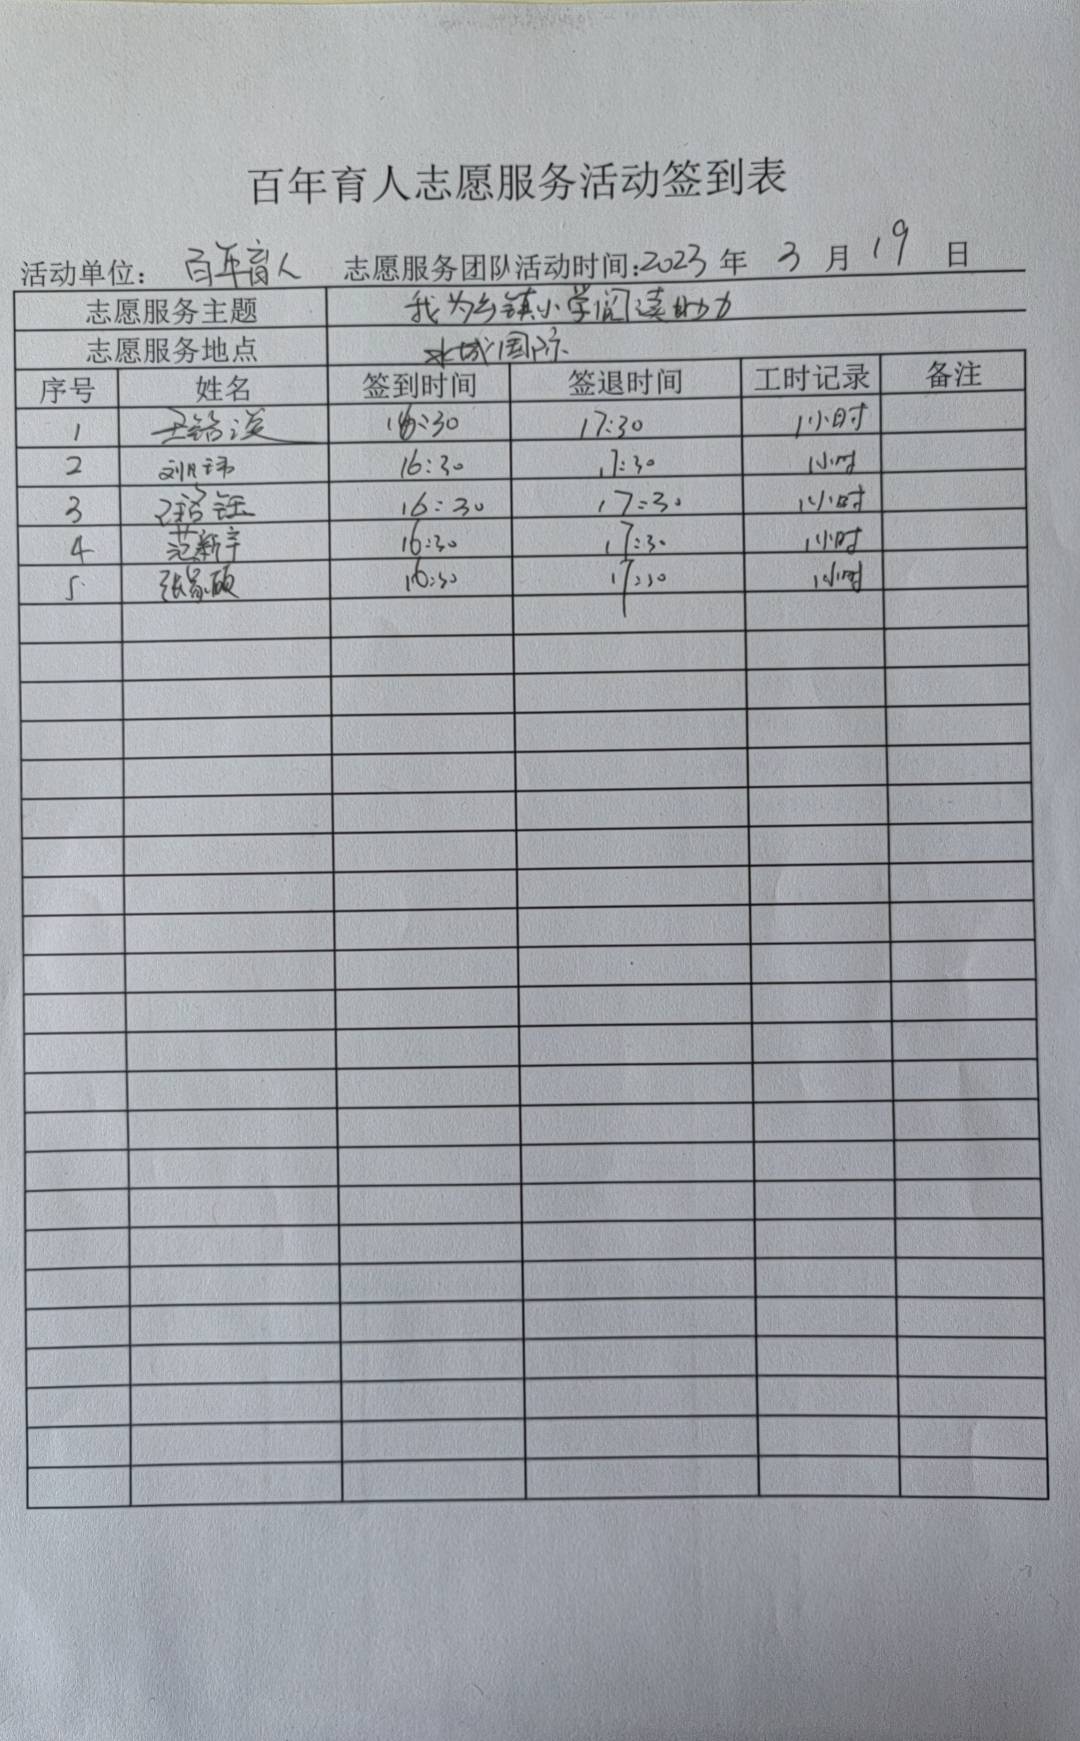 百年育人志愿服务活动签到表
活动单位: 百年育人 志愿服务团队活动时间:2023 年 3 月 19 日
志愿服务主题 我为乡镇小学阅读助力
志愿服务地点 水城国际
序号 姓名 签到时间 签退时间 工时记录 备注
1 16:30 17:30 1小时
2 16:30 17:30 1小时
3 16:30 17:30 1小时
4 范新宇 16:30 17:30 1小时
5 16:30 17:30 1小时